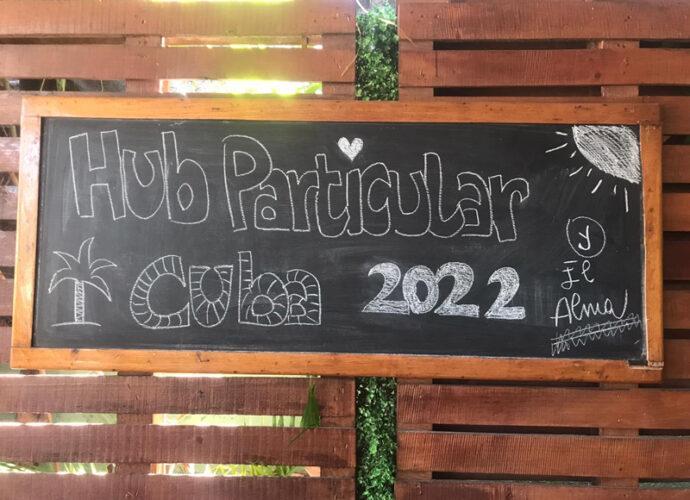 Hub Particular
Cuba 2022
y
El
Alma